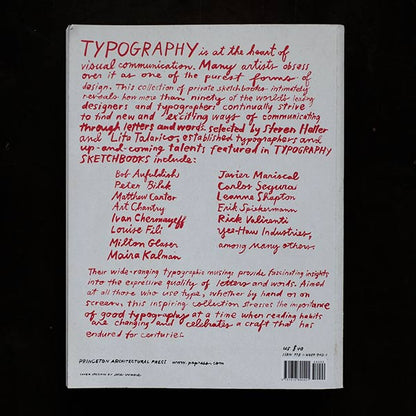 TYPOGRAPHY is at the heart of
visual communication. Many artists obsess
over it as one of the purest forms of
design. This collection of private sketchbooks intimately
reveals how more than ninety of the world's leading
designers and typographers continually strive
to find new and exciting ways of communicating
through letters and words. Selected by Steven Heller
and Lita Talarico, established typographers and
up-and-coming talents featured in TYPOGRAPHY
SKETCHBOOKS include:
Bob Aufuldish
Peter Bilak
Matthew Carter
Art Chantry
Ivan Chermayeff
Louise Fili
Milton Glaser
Maira Kalman
Javier Mariscal
Carlos Segura
Leanne Shapton
Erik Spiekermann
Rick Valicenti
Yee-Haw Industries,
among many others.
Their wide-ranging typographic musings provide fascinating insights
into the expressive quality of letters and words. Aimed
at all those who use type, whether by hand or on
screen, this inspiring collection stresses the importance
of good typography at a time when reading habits
are changing and celebrates a craft that has
endured for centuries.
PRINCETON ARCHITECTURAL PRESS www.papress.com
US $40